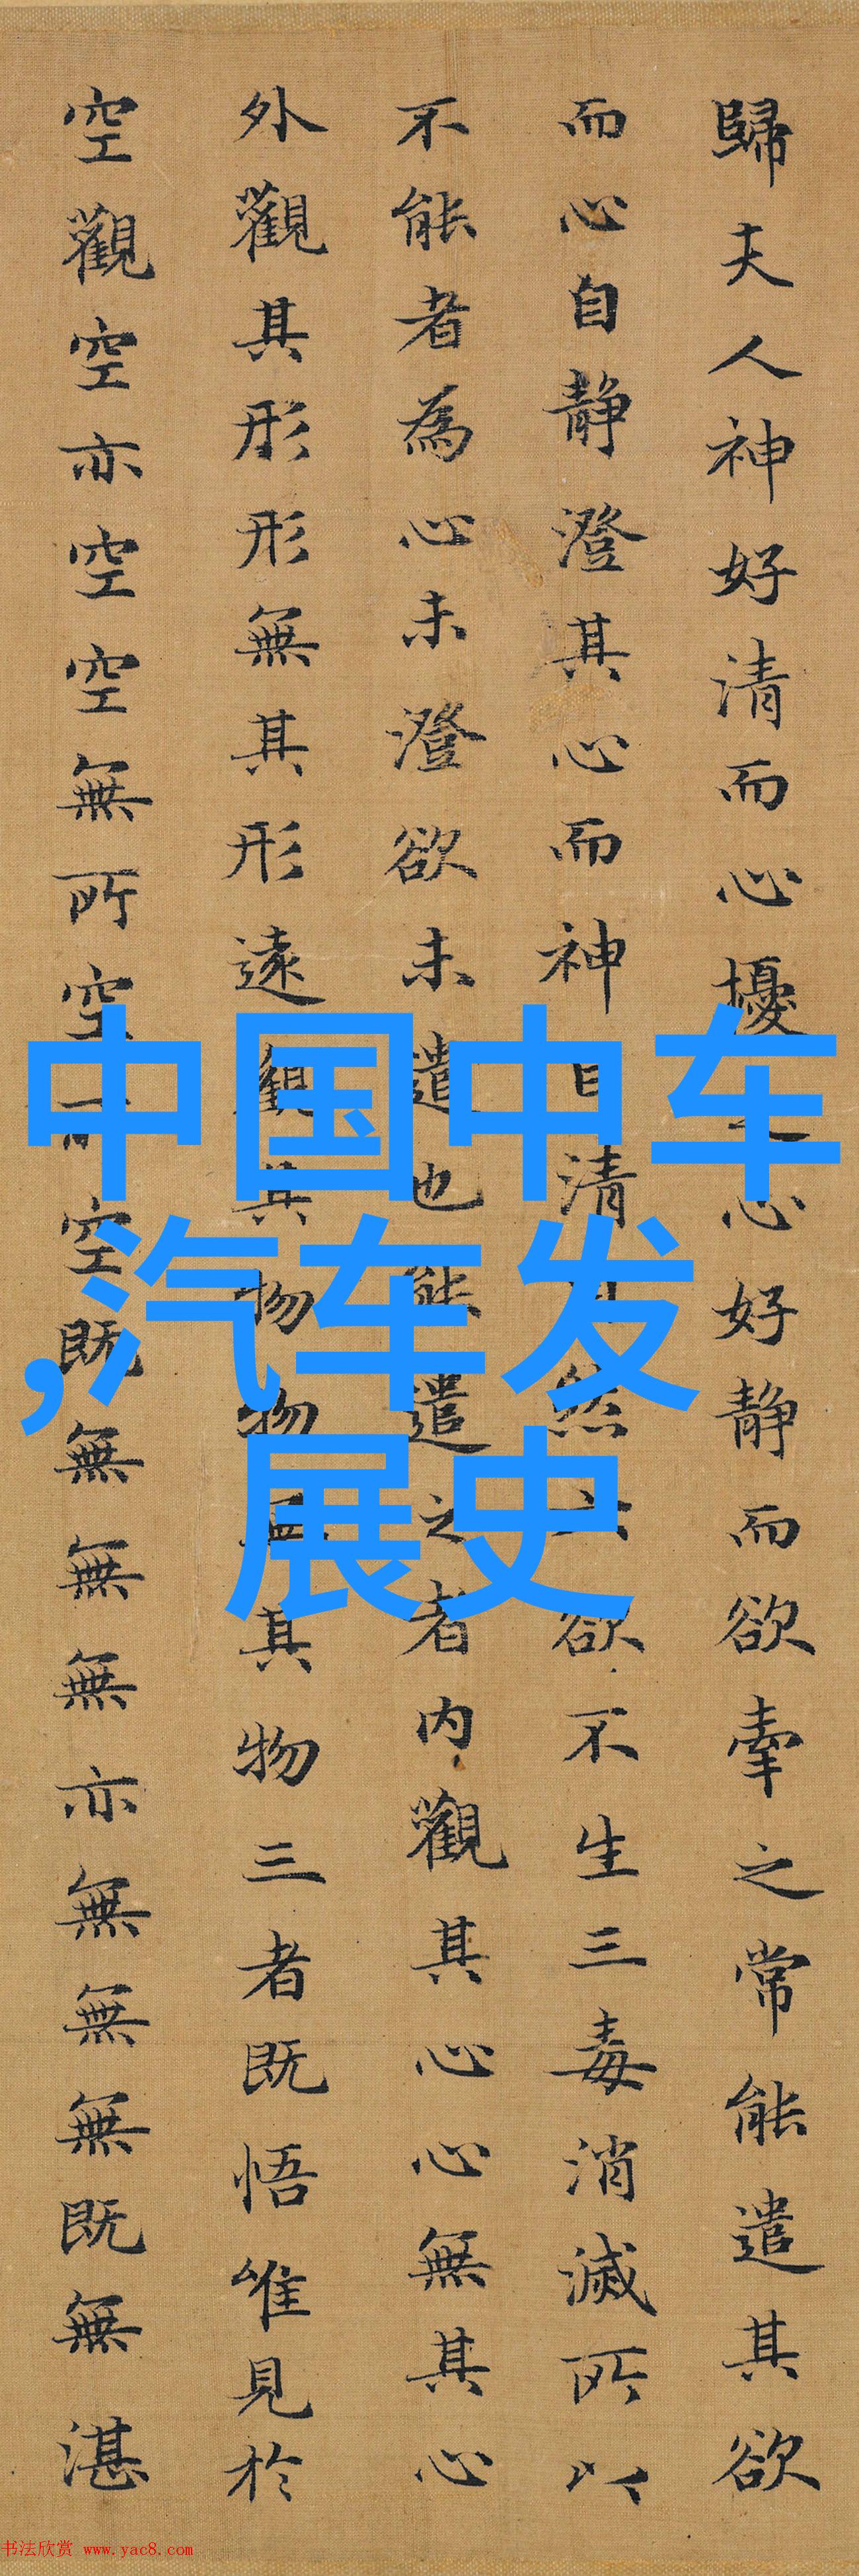 歸夫人神好清而心擾心好静而欲牽之常能遣其欲
而心自静澄其心而神自清然六欲不生三毒消滅所以
不能者為心未澄欲未遣也能遣之者内觀其心心無其心
外觀其形形無其形遠觀其物物無其物三者既悟唯見於
空觀空亦空空無所空所空既無無無亦無無無既無湛
中国中车
,汽车发
展史
书法欣赏 www.yac8.com